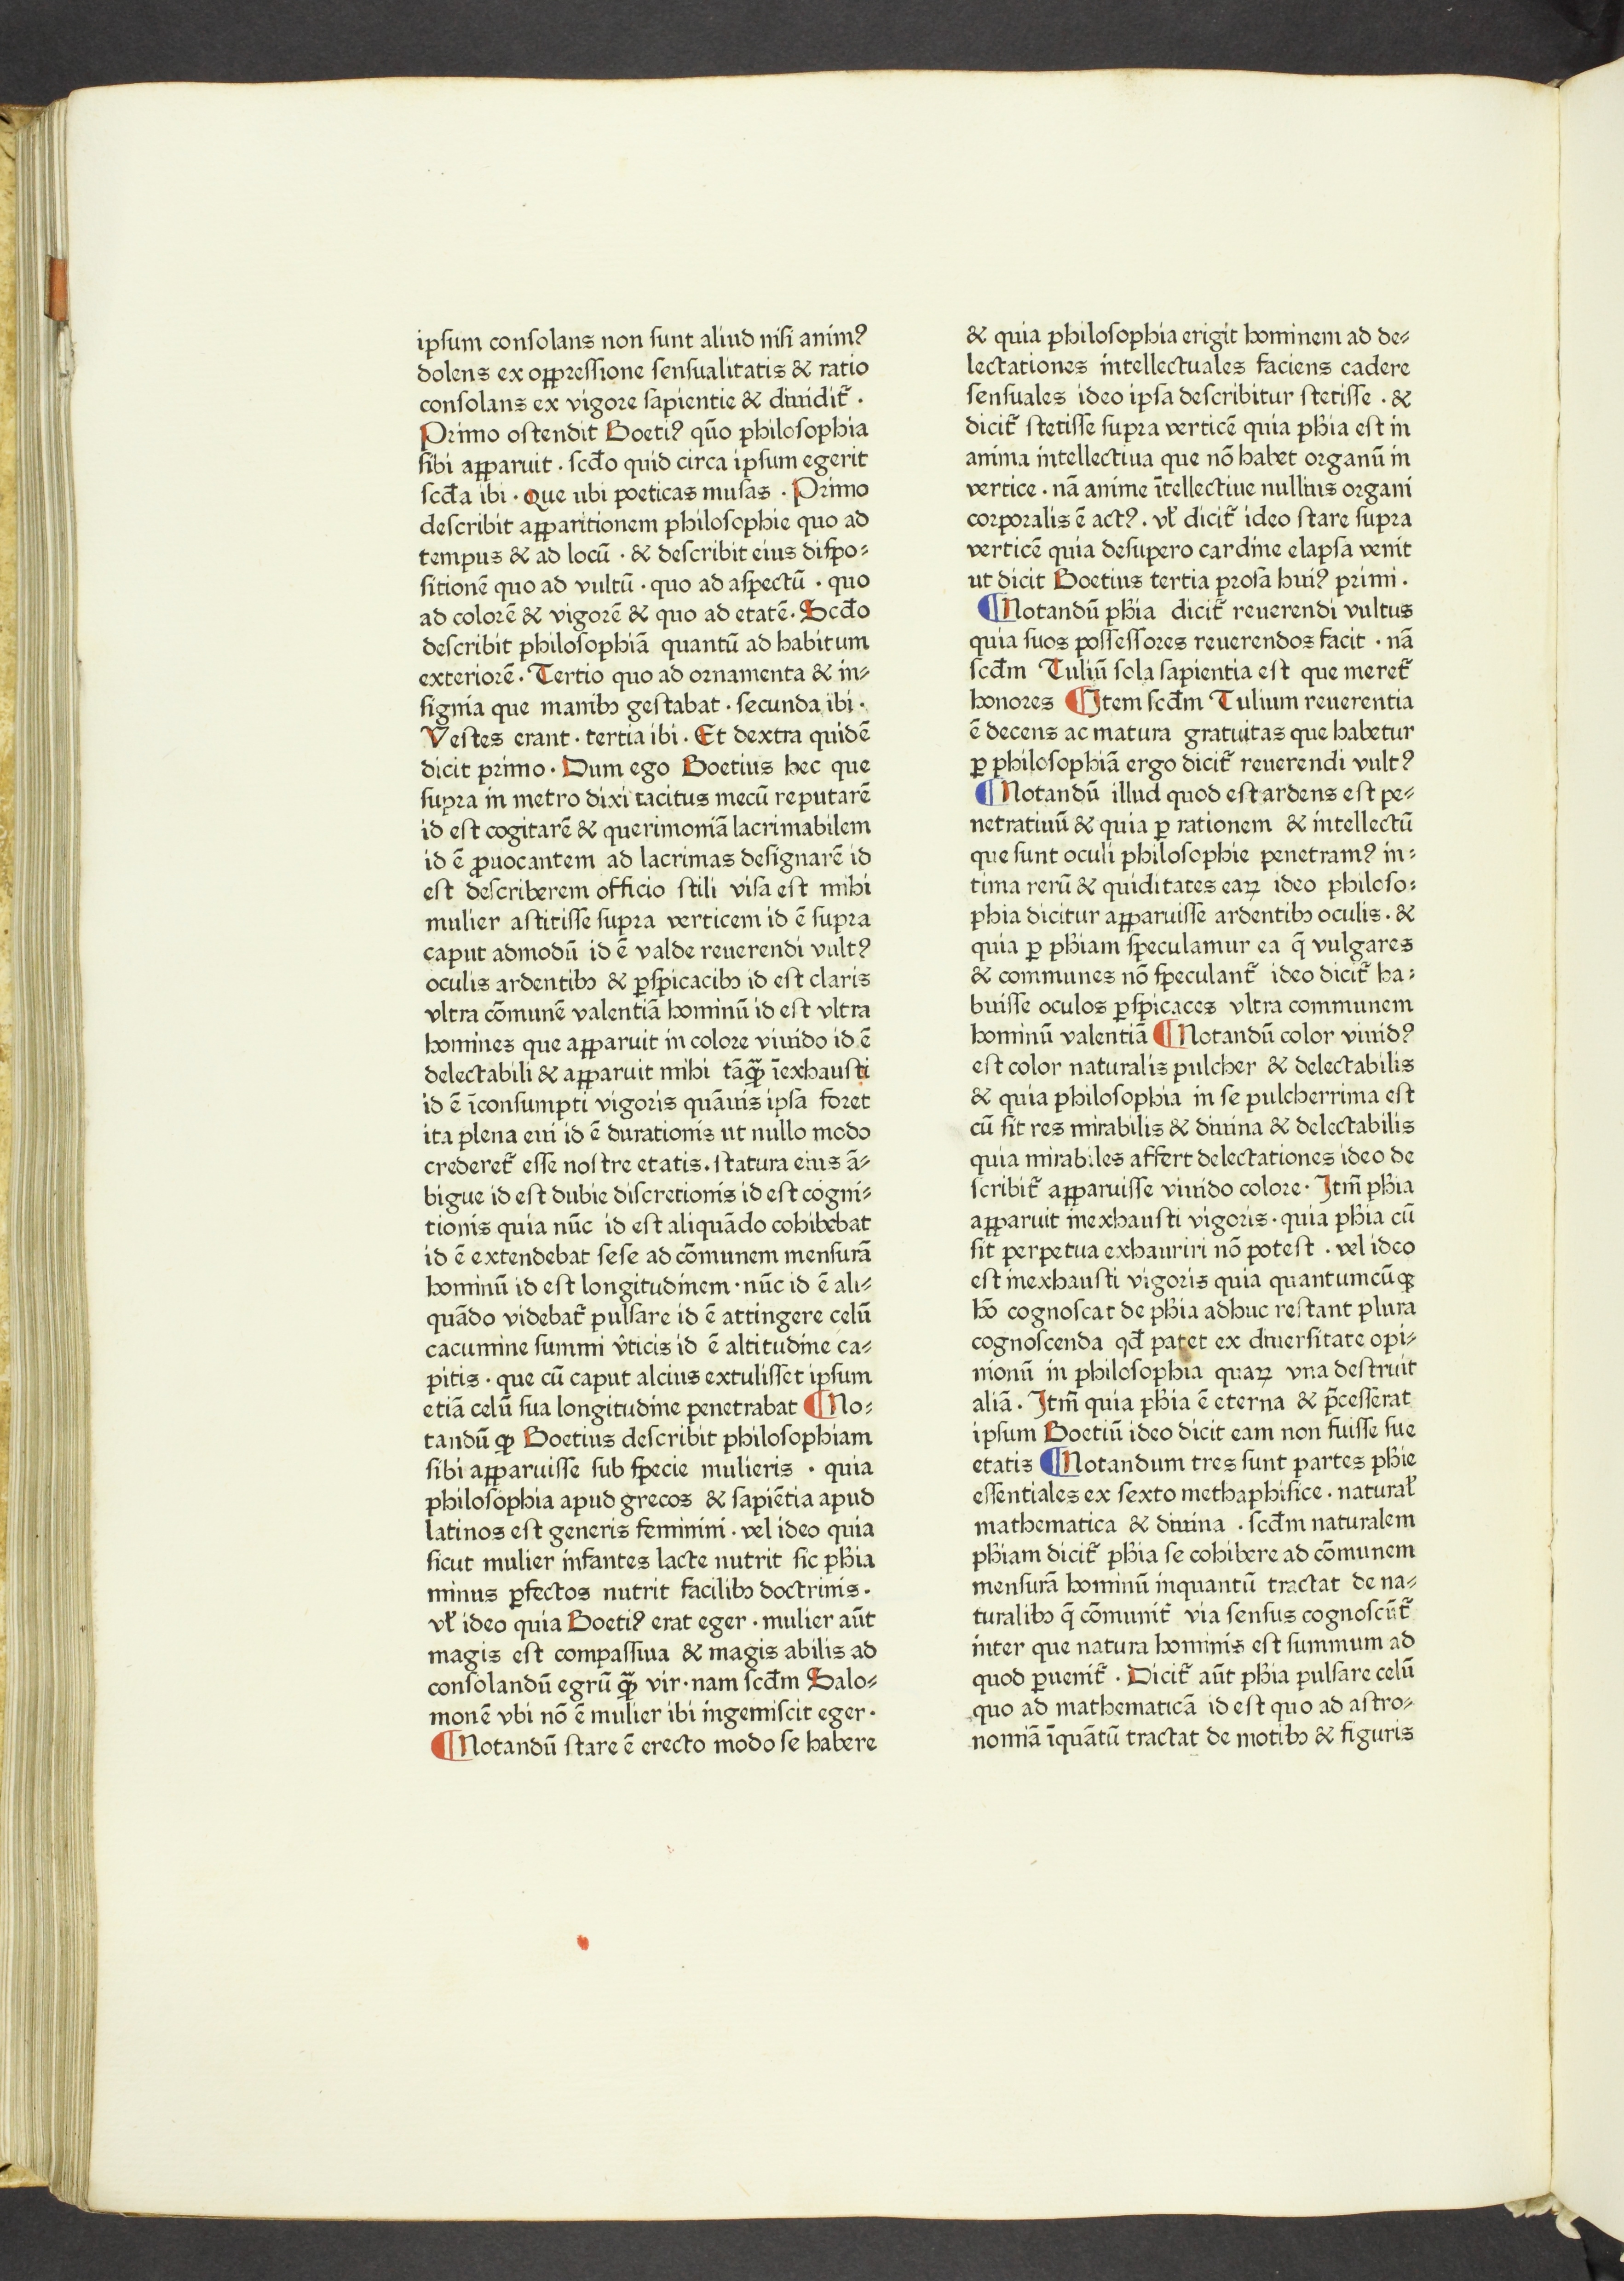 ipſum conſolans non ſunt aliud niſi animꝰ
dolens ex oppreſſione ſenſualitatis & ratio
conſolans ex vigore ſapientie & diuidit᷑ .
Primo oſtendit Boetiꝰ quō philoſophia
ſibi apparuit . ſcd̄o quid circa ipſum egerit
ſcd̄a ibi . Que ubi poeticas muſas . Primo
deſcribit apparitionem philoſophie quo ad
tempus & ad locū . & deſcribit eius diſpo⸗
ſitionē quo ad vultū . quo ad aſpectū . quo
ad colorē & vigorē & quo ad etatē. Scd̄o
deſcribit philoſophiā quantū ad habitum
exteriorē. Tertio quo ad ornamenta & in⸗
ſignia que manibꝫ geſtabat . ſecunda ibi .
Veſtes erant . tertia ibi . Et dextra quidē
dicit primo . Dum ego Boetius hec que
ſupra in metro dixi tacitus mecū reputarē
id eſt cogitarē & querimoniā lacrimabilem
id ē ꝓuocantem ad lacrimas deſignarē id
eſt deſcriberem officio ſtili viſa eſt mihi
mulier aſtitiſſe ſupra verticem id ē ſupra
caput admodū id ē valde reuerendi vultꝰ
oculis ardentibꝫ & ꝑſpicacibꝫ id eſt claris
vltra cōmunē valentiā hominū id eſt vltra
homines que apparuit in colore viuido id ē
delectabili & apparuit mihi tāꝙ̄ īexhauſti
id ē īconſumpti vigoris quāuis ipſa foret
ita plena eui id ē durationis ut nullo modo
crederet᷑ eſſe noſtre etatis. ſtatura eius ā⸗
bigue id eſt dubie diſcretionis id eſt cogni⸗
tionis quia nūc id eſt aliquādo cohibebat
id ē extendebat ſeſe ad cōmunem menſurā
hominū id eſt longitudinem . nūc id ē ali⸗
quādo videbat᷑ pulſare id ē attingere celū
cacumine ſummi v̄ticis id ē altitudine ca⸗
pitis . que cū caput alcius extuliſſet ipſum
etiā celū ſua longitudine penetrabat ¶No⸗
tandū ꝙ Boetius deſcribit philoſophiam
ſibi apparuiſſe ſub ſpecie mulieris . quia
philoſophia apud grecos & ſapiētia apud
latinos eſt generis feminini . vel ideo quia
ſicut mulier infantes lacte nutrit ſic ph̄ia
minus ꝑfectos nutrit facilibꝫ doctrinis .
vł ideo quia Boetiꝰ erat eger . mulier aūt
magis eſt compaſſiua & magis abilis ad
conſolandū egrū ꝙ̄ vir . nam ſcd̄m Salo⸗
monē vbi nō ē mulier ibi ingemiſcit eger .
¶Notandū ſtare ē erecto modo ſe habere
& quia philoſophia erigit hominem ad de⸗
lectationes intellectuales faciens cadere
ſenſuales ideo ipſa deſcribitur ſtetiſſe . &
dicit᷑ ſtetiſſe ſupra verticē quia ph̄ia eſt in
anima intellectiua que nō habet organū in
vertice . nā anime ītellectiue nullius organi
corporalis ē actꝰ . vł dicit᷑ ideo ſtare ſupra
verticē quia deſupero cardine elapſa venit
ut dicit Boetius tertia proſa huiꝰ primi .
¶Notandū ph̄ia dicit᷑ reuerendi vultus
quia ſuos poſſeſſores reuerendos facit . nā
ſcd̄m Tuliū ſola ſapientia eſt que meret᷑
honores ¶Item ſcd̄m Tulium reuerentia
ē decens ac matura gratuitas que habetur
ꝑ philoſophiā ergo dicit᷑ reuerendi vultꝰ
¶Notandū illud quod eſt ardens eſt pe⸗
netratiuū & quia ꝑ rationem & intellectū
que ſunt oculi philoſophie penetramꝰ in⸗
tima rerū & quiditates eaꝝ ideo philoſo⸗
phia dicitur apparuiſſe ardentibꝫ oculis . &
quia ꝑ ph̄iam ſpeculamur ea q̄ vulgares
& communes nō ſpeculant᷑ ideo dicit᷑ ha⸗
buiſſe oculos ꝑſpicaces vltra communem
hominū valentiā ¶Notandū color viuidꝰ
eſt color naturalis pulcher & delectabilis
& quia philoſophia in ſe pulcherrima eſt
cū ſit res mirabilis & diuina & delectabilis
quia mirabiles affert delectationes ideo de
ſcribit᷑ apparuiſſe viuido colore . Itm̄ ph̄ia
apparuit inexhauſti vigoris . quia ph̄ia cū
ſit perpetua exhauriri nō poteſt . vel ideo
eſt inexhauſti vigoris quia quantumcūꝙ
hō cognoſcat de ph̄ia adhuc reſtant plura
cognoſcenda qd̄ patet ex diuerſitate opi⸗
nionū in philoſophia quaꝝ vna deſtruit
aliā . Itm̄ quia ph̄ia ē eterna & p̄ceſſerat
ipſum Boetiū ideo dicit eam non fuiſſe ſue
etatis ¶Notandum tres ſunt partes ph̄ie
eſſentiales ex ſexto methaphiſice . naturał
mathematica & diuina . ſcd̄m naturalem
ph̄iam dicit᷑ ph̄ia ſe cohibere ad cōmunem
menſurā hominū inquantū tractat de na⸗
turalibꝫ q̄ cōmunit᷑ via ſenſus cognoſcūt᷑
inter que natura hominis eſt ſummum ad
quod ꝑuenit᷑ . Dicit᷑ aūt ph̄ia pulſare celū
quo ad mathematicā id eſt quo ad aſtro⸗
nomiā īquātū tractat de motibꝫ & figuris